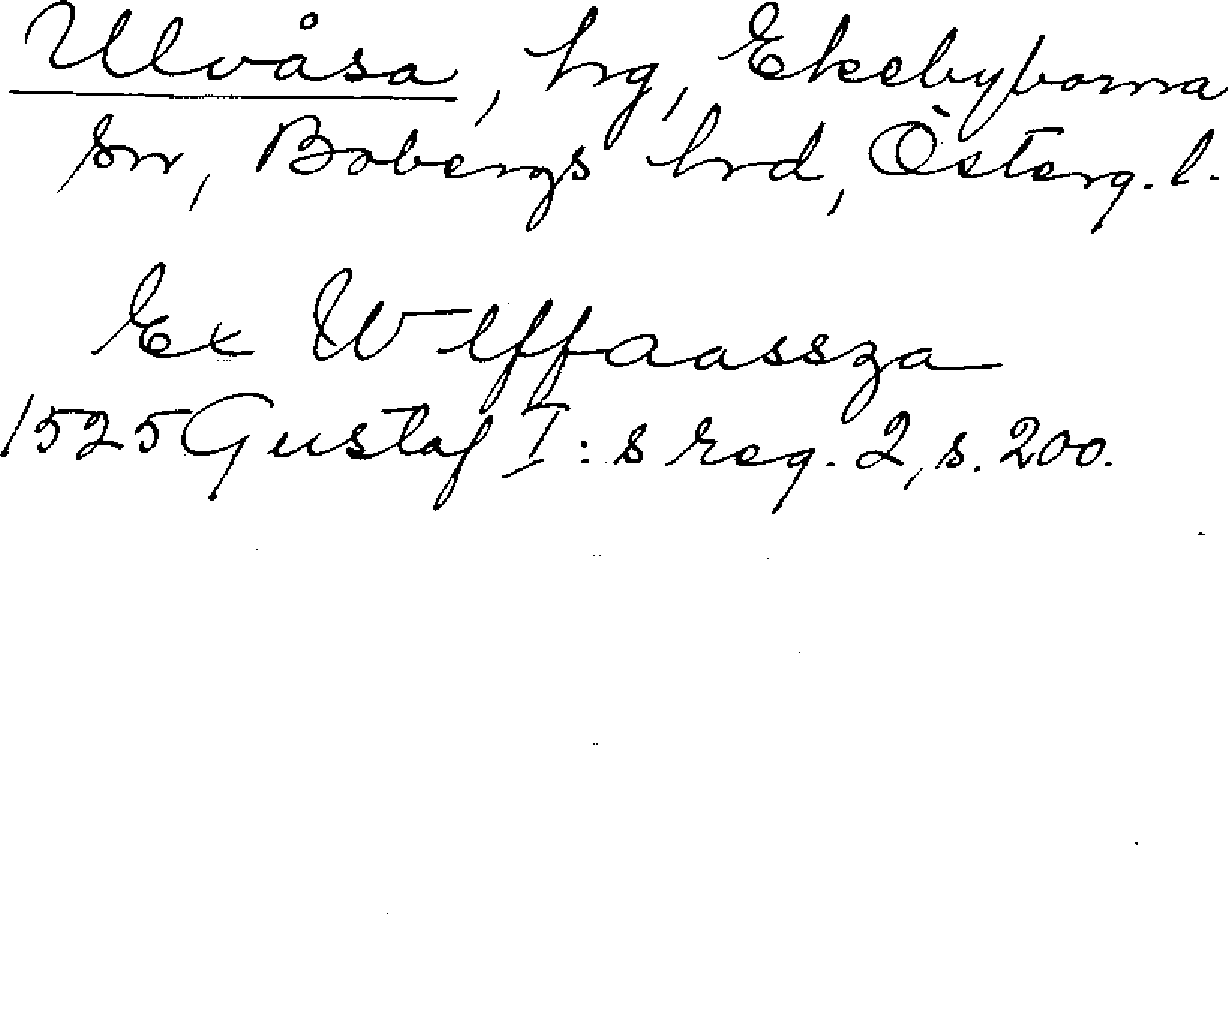 Ulvåsa, hrg, Ekebyborna
sn, Bobergs hrd, Österg. l.
Ex Wlffaassza
1525 Gustaf I:s reg. 2, s. 200.